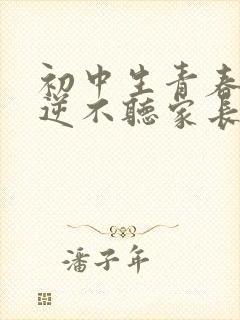 初中生青春
逆不聽家長
潘子年